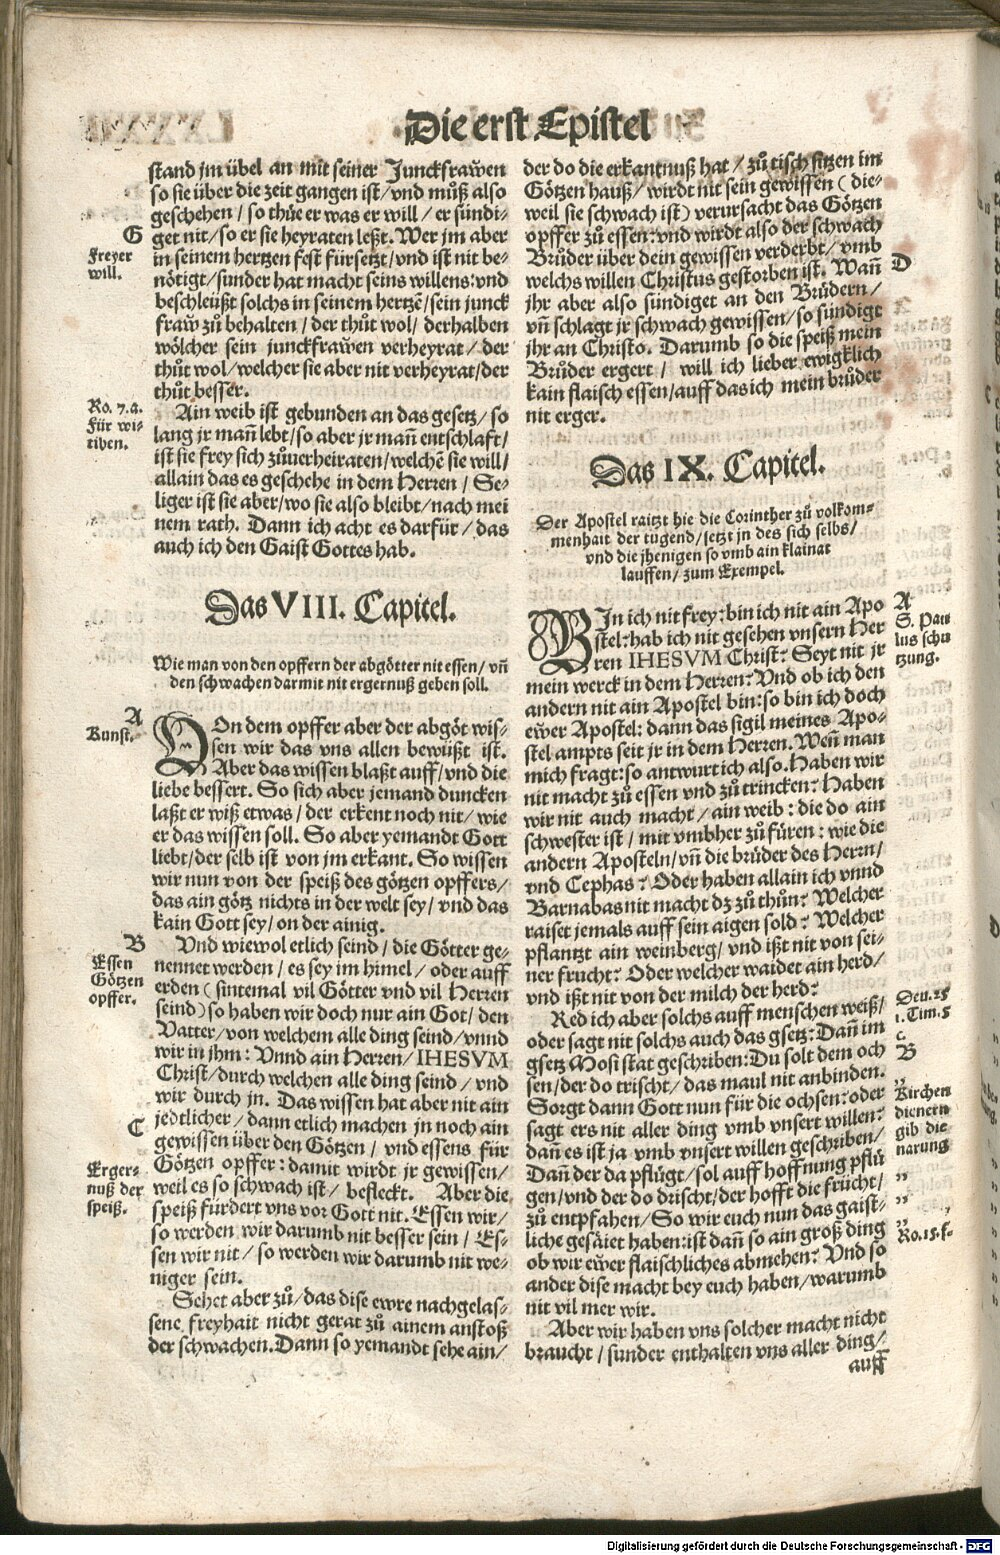 Die erst Epistel
stand jm übel an mit seiner Junckfraẃen
so sie über die zeit gangen ist/ vnd mů̈ß also
geschehen / so thůe er was er will / er sündi-
G
get nit/ so er sie heyraten leßt. Wer jm aber
Freyer
will.
in seinem hertzen fest fürsetzt/ vnd ist nit be-
nötigt/ sunder hat macht seins willens: vnd
beschleüßt solchs in seinem hertzẽ/ sein junck
fraẃ zů behalten / der thůt wol/ derhalben
wölcher sein junckfraẃen verheyrat / der
thůt wol/ welcher sie aber nit verheyrat/ der
thůt besser.
Ro. 7.a.
Für wi-
tiben.
Ain weib ist gebunden an das gesetz/ so
lang jr mañ lebt/ so aber jr mañ entschlaft/
ist sie frey sich zůuerheiraten/ welchẽ sie will/
allain das es geschehe in dem Herren / Se-
liger ist sie aber/ wo sie also bleibt/ nach mei
nem rath. Dann ich acht es darfür / das
auch ich den Gaist Gottes hab.
Das VIII. Capitel.
Wie man von den opffern der abgötter nit essen/ vñ
den schwachen darmit nit ergernuß geben soll.
A
Kunst.
VOn dem opffer aber der abgöt wis-
sen wir das vns allen bewüßt ist.
Aber das wissen blaßt auff/ vnd die
liebe bessert. So sich aber jemand duncken
laßt er wiß etwas/ der erkent noch nit/ wie
er das wissen soll. So aber yemandt Gott
liebt/ der selb ist von jm erkant. So wissen
wir nun von der speiß des götzen opffers/
das ain götz nichts in der welt sey/ vnd das
kain Gott sey/ on der ainig.
B
Essen
Götzen
opffer.
Vnd wiewol etlich seind/ die Götter ge-
nennet werden/ es sey im himel / oder auff
erden ( sintemal vil Götter vnd vil Herren
seind) so haben wir doch nur ain Got/ den
Vatter/ von welchem alle ding seind/ vnnd
wir in jhm: Vnnd ain Herren/ IHESVM
Christ/ durch welchen alle ding seind / vnd
wir durch jn. Das wissen hat aber nit ain
C
jedtlicher/ dann etlich machen jn noch ain
gewissen über den Götzen / vnd essens für
Erger-
nuß der
speiß.
Götzen opffer: damit wirdt jr gewissen/
weil es so schwach ist/ befleckt. Aber die
speiß fürdert vns vor Gott nit. Essen wir/
so werden wir darumb nit besser sein/ Es-
sen wir nit/ so werden wir darumb nit we-
niger sein.
Sehet aber zů/ das dise ewre nachgelas-
sene freyhait nicht gerat zů ainem anstoß
der schwachen. Dann so yemandt sehe ain/
der do die erkantnuß hat / zů tisch sitzen im
Götzen hauß/ wirdt nit sein gewissen ( die-
weil sie schwach ist) verursacht das Götzen
opffer zů essen: vnd wirdt also der schwach
Brůder über dein gewissen verderbt/ vmb
D
welchs willen Christus gestorben ist. Wañ
jhr aber also sündiget an den Brüdern/
vñ schlagt jr schwach gewissen/ so sündigt
jhr an Christo. Darumb so die speiß mein
Brůder ergert / will ich lieber ewigklich
kain flaisch essen/ auff das ich mein brůder
nit erger.
Das IX. Capitel.
Der Apostel raitzt hie die Corinther zů volkom-
menhait der tugend/ setzt jn des sich selbs/
vnd die jhenigen so vmb ain klainat
lauffen/ zum Exempel.
A
S. Pau
lus schu
tzung.
BIn ich nit frey: bin ich nit ain Apo
stel: hab ich nit gesehen vnsern Her
ren IHESVM Christ? Seyt nit jr
mein werck in dem Herren? Vnd ob ich den
andern nit ain Apostel bin: so bin ich doch
eẃer Apostel: dann das sigil meines Apo-
stel ampts seit jr in dem Herren. Weñ man
mich fragt: so antwurt ich also. Haben wir
nit macht zů essen vnd zů trincken? Haben
wir nit auch macht / ain weib : die do ain
schwester ist / mit vmbher zů füren : wie die
andern Aposteln/ vñ die brüder des Herrn/
vnd Cephas? Oder haben allain ich vnnd
Barnabas nit macht dz zů thůn? Welcher
raiset jemals auff sein aigen sold? Welcher
pflantzt ain weinberg/ vnd ißt nit von sei-
ner frucht? Oder welcher waidet ain herd/
vnd ißt nit von der milch der herd?
Deu. 25
1. Tim. 5
c
B
Red ich aber solchs auff menschen weiß/
oder sagt nit solchs auch das gsetz: Dañ im
gsetz Mosi stat geschriben: Du solt dem och
sen/ der do trischt/ das maul nit anbinden.
Kirchen
dienern
gib die
narung
Sorgt dann Gott nun für die ochsen: oder
sagt ers nit aller ding vmb vnsert willen?
dañ es ist ja vmb vnsert willen geschriben/
Dañ der da pflügt/ sol auff hoffnung pflü
gen/ vnd der do drischt/ der hofft die frücht/
zů entpfahen/ So wir euch nun das gaist-
Ro. 15. f.
liche gesäiet haben: ist dañ so ain groß ding
ob wir eẃer flaischliches abmehen? Vnd so
ander dise macht bey euch haben/ warumb
nit vil mer wir.
Aber wir haben vns solcher macht nicht
braucht / sunder enthalten vns aller ding/
auff
Digitalisierung gefördert durch die Deutsche Forschungsgemeinschaft - DFG